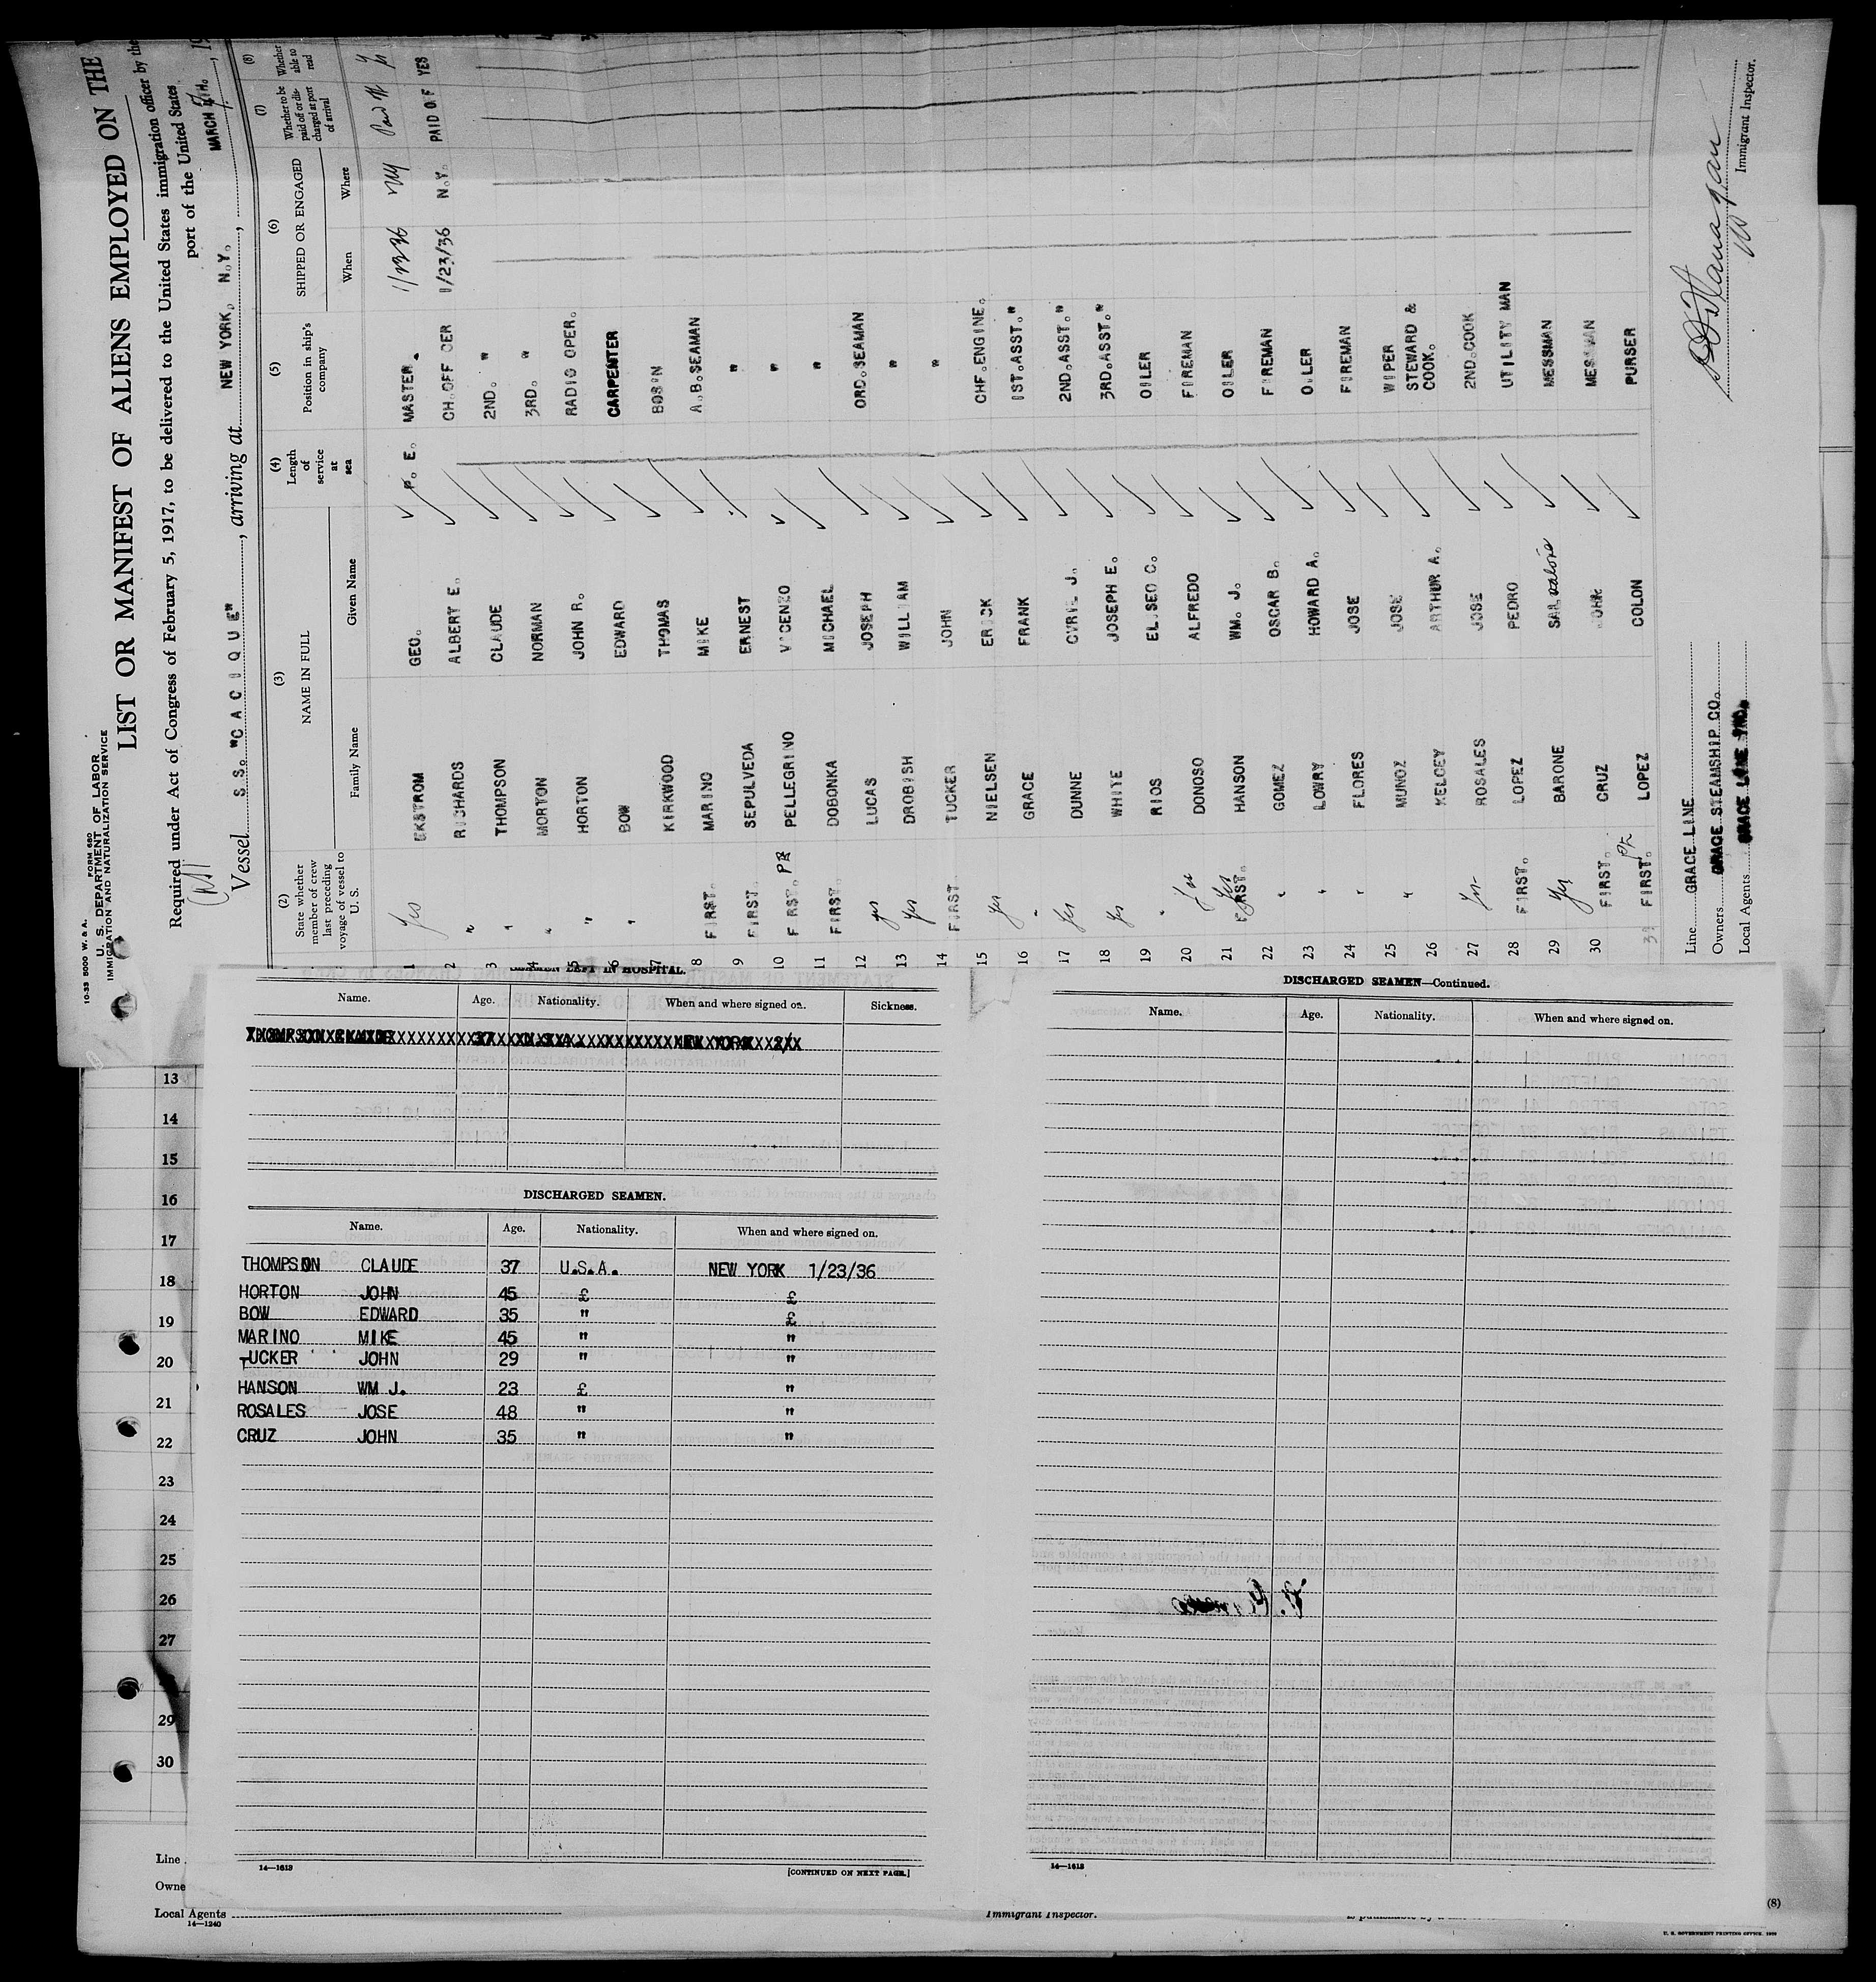 10-33 5000 W. & A. FORM 680
U. S. DEPARTMENT OF LABOR
IMMIGRATION AND NATURALIZATION SERVICE
LIST OR MANIFEST OF ALIENS EMPLOYED ON THE
Required under Act of Congress of February 5, 1917, to be delivered to the United States immigration officer by the
port of the United States
Vessel S S. "CACIQUE", arriving at NEW YORK, N.Y., MARCH
(2) State whether member of crew last preceding voyage of vessel to U. S.
(3) NAME IN FULL
Family Name Given Name
(4) Length of service at sea
(5) Position in ship's company
(6) SHIPPED OR ENGAGED
When Where
(7) Whether to be paid off or discharged at port of arrival
(8) Whether able to read
1 Yes EKSTROM GEO. P. E. MASTER. NY
2 " RICHARDS ALBERT E. CH.OFFICER 1/23/36 N.Y. PAID OFF YES
3 " THOMPSON CLAUDE 2ND. "
4 " MORTON NORMAN 3RD. "
5 " HORTON JOHN R. RADIO OPER.
6 " BOW EDWARD CARPENTER
7 KIRKWOOD THOMAS BOSIN
8 FIRST. MARINO MIKE A.B.SEAMAN
9 FIRST. SEPULVEDA ERNEST "
10 FIRST. PR PELLEGRINO VICENZO "
11 FIRST. DOBONKA MICHAEL "
12 yes LUCAS JOSEPH ORD.SEAMAN
13 yes DROBISH WILLIAM "
14 FIRST. TUCKER JOHN "
15 yes NIELSEN ERICK CHF.ENGINE.
16 " GRACE FRANK 1ST.ASST."
17 yes DUNNE CYRIL J. 2ND.ASST."
18 yes WHITE JOSEPH E. 3RD.ASST."
19 " RIOS ELISEO C. OILER
20 Yes DONOSO ALFREDO FIREMAN
21 FIRST. Yes HANSON WM. J. OILER
22 " GOMEZ OSCAR B. FIREMAN
23 " LOWRY HOWARD A. OILER
24 " FLORES JOSE FIREMAN
25 " MUNOZ JOSE WIPER
26 KELCEY ARTHUR A. STEWARD & COOK.
27 Yes ROSALES JOSE 2ND.COOK
28 FIRST. LOPEZ PEDRO UTILITY MAN
29 Yes BARONE SALvatore MESSMAN
30 FIRST. CRUZ JOHN MESSMAN
FIRST. PR LOPEZ COLON PURSER
Line GRACE LINE
Owners GRACE STEAMSHIP CO.
Local Agents
Immigrant Inspector.
SEAMEN LEFT IN HOSPITAL.
Name. Age. Nationality. When and where signed on. Sickness.
DISCHARGED SEAMEN.
Name. Age. Nationality. When and where signed on.
THOMPSON CLAUDE 37 U.S.A. NEW YORK 1/23/36
HORTON JOHN 45 £ £
BOW EDWARD 35 " £
MARINO MIKE 45 " "
TUCKER JOHN 29 " "
HANSON WM J. 23 £ "
ROSALES JOSE 48 " "
CRUZ JOHN 35 " "
14—1613
[CONTINUED ON NEXT PAGE.]
DISCHARGED SEAMEN—Continued.
Name. Age. Nationality. When and where signed on.
14—1613
13
14
15
16
17
18
19
20
21
22
23
24
25
26
27
29
30
Line
Owne
Local Agents
14—1240
Immigrant Inspector.
(8)
U. S. GOVERNMENT PRINTING OFFICE